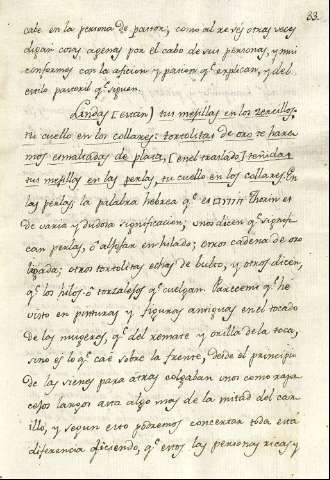 83.
cabe en la persona de pastor, como al reves otras veces
digan cosas agenas por el cabo de sus personas, y mui
conformes con la aficion y pasion qe explican, y del
estilo pastoril qe siguen.
Lindas [estan] tus mesillas en los zercillos,
tu cuello en los collares: tortolitas de oro te hare
mos esmaltadas de plata, [en el traslado]
tus mesillas en las perlas, tu cuello en los collares. En
las perlas; la palabra hebrea qe es Thorim es
de varia y dudosa significacion; unos dicen qe signifi
can perlas, ò aljofar en hilado; otros cadena de oro
; otros tortolitas echas de bulto, y otros dicen,
qe los hilos ò torzalejos qe cuelgan. Pareceme qe he
visto en pinturas y figuras antiguas en el tocado
de las mugeres, qe del remate y orilla de la toca,
sino es lo qe cae sobre la frente, desde el principio
de las sienes para atras colgaban unos como rapa
cejos largos asta algo mas de la mitad del car
illo, y segun esto podremos concertar toda esta
diferencia diciendo, qe estos las personas ricas y